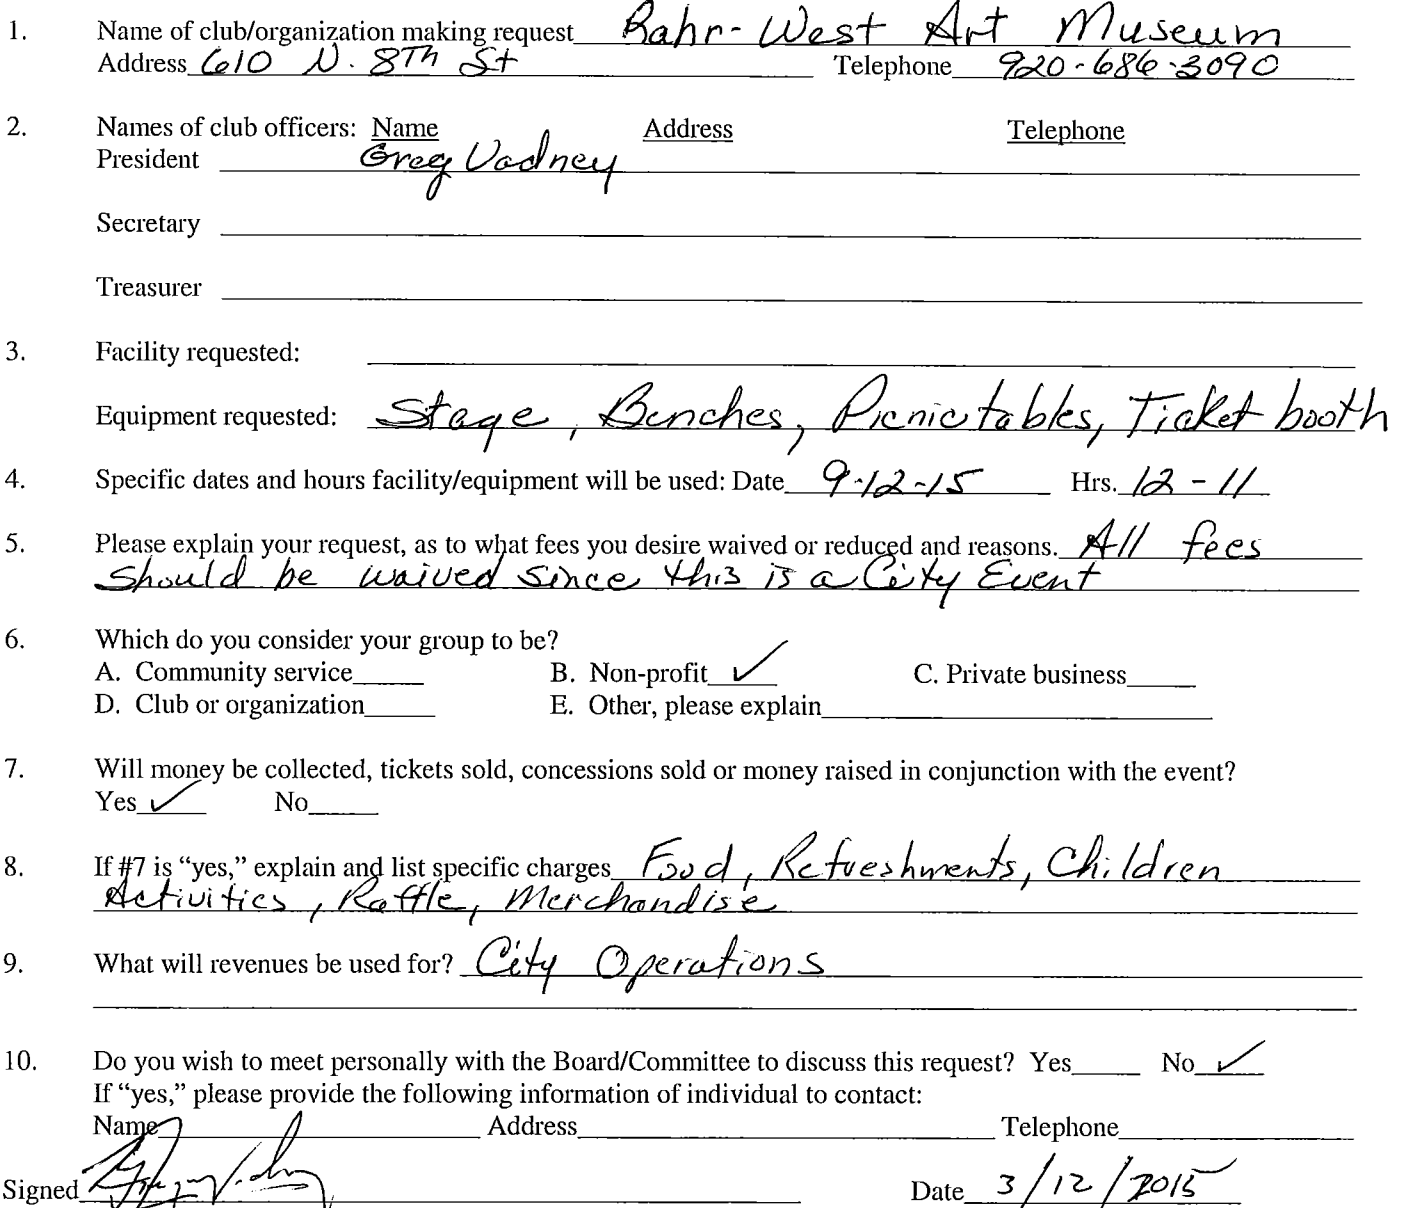 1. Name of club/organization making request Rahr-West Art Museum
Address 610 N. 8th St Telephone 920-686-3090
2. Names of club officers: Name Address Telephone
President Greg Vadney
Secretary
Treasurer
3. Facility requested:
Equipment requested: Stage, Benches, Picnic tables, Ticket booth
4. Specific dates and hours facility/equipment will be used: Date 9-12-15 Hrs. 12-11
5. Please explain your request, as to what fees you desire waived or reduced and reasons. All fees
should be waived since this is a City Event
6. Which do you consider your group to be?
A. Community service B. Non-profit ✓ C. Private business
D. Club or organization E. Other, please explain
7. Will money be collected, tickets sold, concessions sold or money raised in conjunction with the event?
Yes ✓ No
8. If #7 is “yes,” explain and list specific charges Food, Refreshments, Children
Activities, Raffle, Merchandise
9. What will revenues be used for? City Operations
10. Do you wish to meet personally with the Board/Committee to discuss this request? Yes No ✓
If “yes,” please provide the following information of individual to contact:
Name Address Telephone
Signed Date 3/12/2015